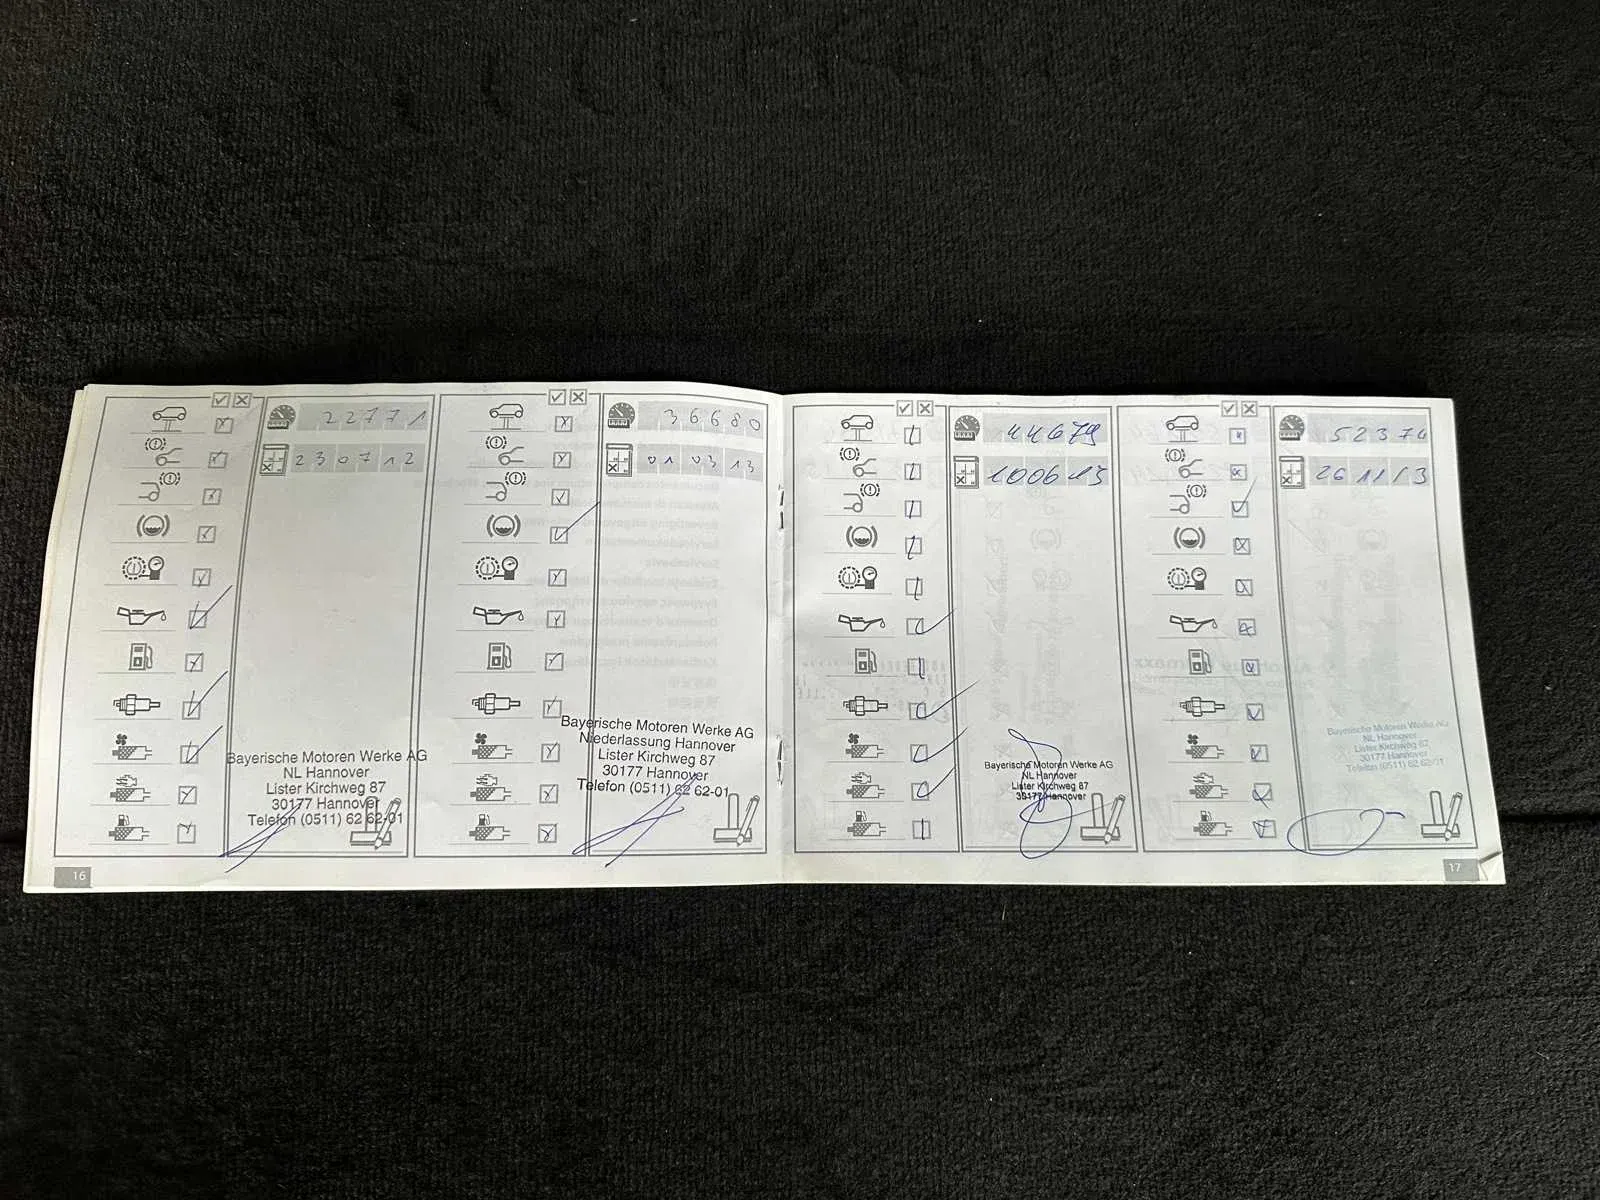 22771
230712
Bayerische Motoren Werke AG
NL Hannover
Lister Kirchweg 87
30177 Hannover
Telefon (0511) 62 62-01
16
36680
010313
Bayerische Motoren Werke AG
Niederlassung Hannover
Lister Kirchweg 87
30177 Hannover
Telefon (0511) 62 62-01
44679
100613
Bayerische Motoren Werke AG
NL Hannover
Lister Kirchweg 87
30177 Hannover
52374
261113
Bayerische Motoren Werke AG
NL Hannover
Lister Kirchweg 87
30177 Hannover
Telefon (0511) 62 62-01
17